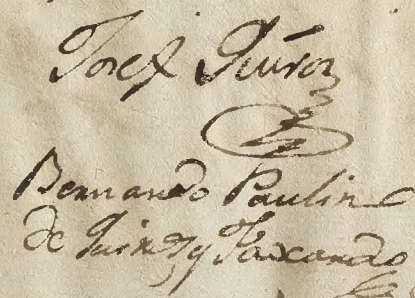 Josef Quiros
Bernardo Paulin
de Quiros y Taxando